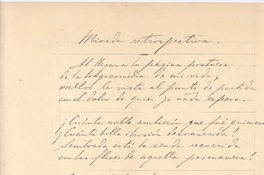 Mirada retrospectiva.
Al llegar a la página postrera
de la tragicomedia de mi vida,
vuelvo la vista al punto de partida
con el dolor de quien ya nada espera.
¡Cuánta noble ambición que fué quimera!
¡Cuánta bella ilusión desvanecida!
Sembrada está la senda recorrida
con las flores de aquella primavera!